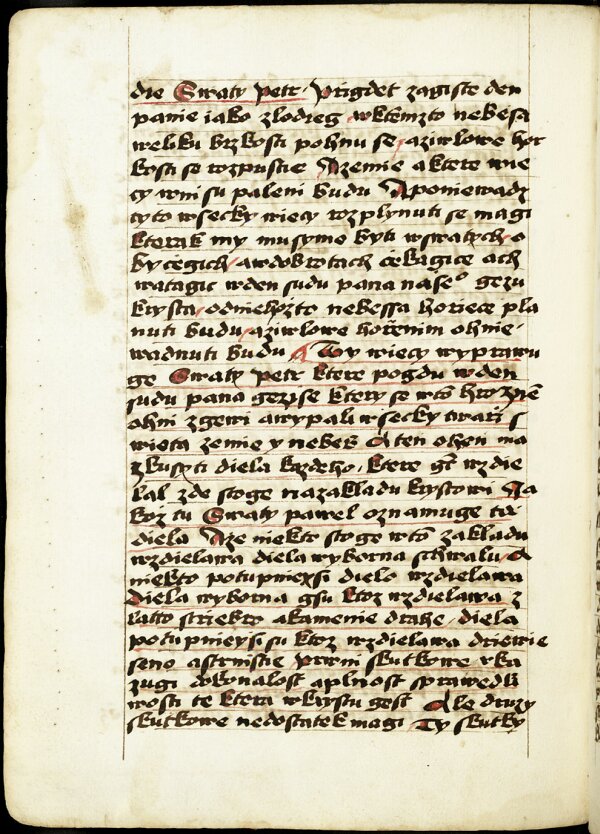 die Swaty petr prigdet zagiste den
panie jako zlodieg wktemzto nebesa
weliku brzkosti pohnu se aziwlowe hor
kosti se rozpustie Azemie aktere wie
cy wnisu paleni budu Aponiewadz
tyto wsecky wiecy rozplynuti se magi
kterak my musyme byti wswatych o
bycegich awdobrotach cekagice ach
watagic wden sudu pana naseo gezu
krysta odniehozto nebessa horiece pla
nuti budu aziwlowe horenim ohnie
wadnuti budu Toy wiecy wyprawu
ge Swaty petr ktere pogdu wden
sudu pana gezise ktery se wto hroznie
ohni zgewi awypali wsecky twari s
wieta zemie y nebes A ten ohen ma
zkusyti diela kazdeho ktere gt wzdie
lal zde stoge nazakladu krystowi Ja
koz tu Swaty pawel oznamuge ta
diela Aze niekto stoge wto zakladu
wzdielawa diela wyborna schwalu A
niekto potupnieysi dielo wzdielawa
diela wyborna gsu ktoz wzdielawa z
latto striebro akamenie drahe diela
potupnieysi su ktoz wzdielawa drziewie
seno astrnistie prwni skutkowe vka
zugi dokonalost aplnost sprawedli
wosti te ktera wkrystu gest Ale druzy
skutkowe nedostatek magi Ty skutky